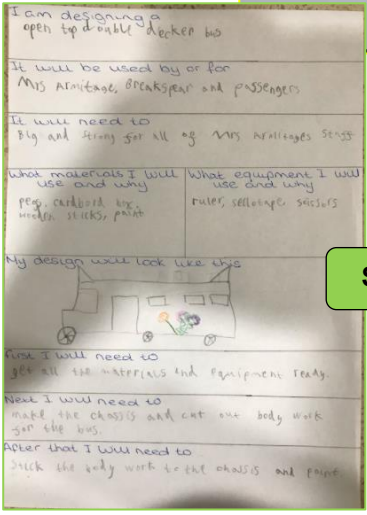 I am designing a
open top double decker bus
It will be used by or for
Mrs Armitage, Breakspear and passengers
It will need to
Big and strong for all of Mrs Armitages stuff
What materials I will
use and why
pegs, cardbord box,
wooden sticks, paint
What equipment I will
use and why
ruler, sellotape, scissors
My design will look like this
S
First I will need to
get all the materials and equipment ready.
Next I will need to
make the chassis and cut out body work
for the bus.
After that I will need to
stick the body work to the chassis and paint.